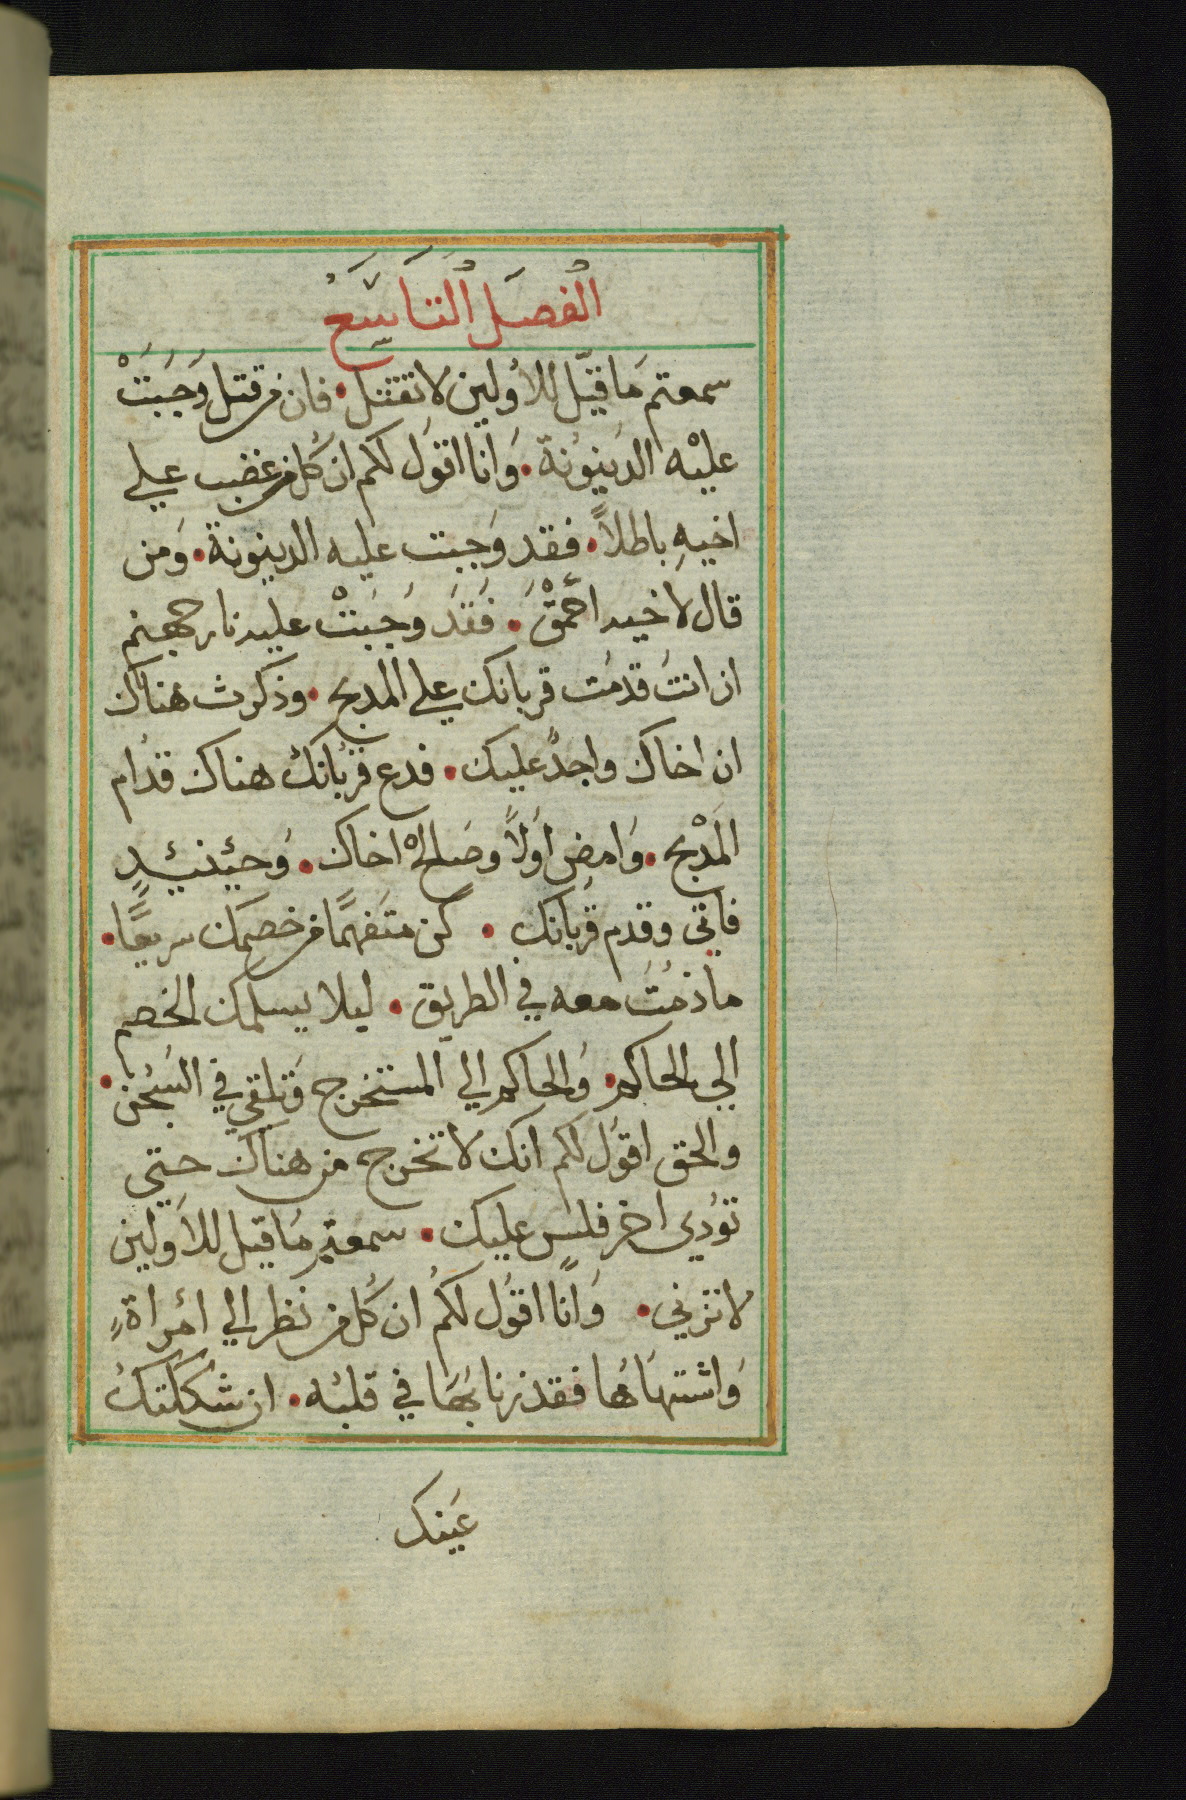 الفصل التاسع
سمعتم مَا قيّل للاُولين لا تقتل • فان من قتل وَجَبَتْ
عليْه الدَينوُنة • وَانا اقوَل لكم ان كل من غضب علي
اخيهِ باطلاً • فقد وَجبت عليه الدينونة • وَمن
قال لاخيه احْمقْ • فَقدَ وَجَبَتْ عليه نار جهنم
ان انتَ قدمُت قربانك علي المدبح • وذكرت هناك
ان اخاك واجدُ عليك • فدع قرُبانك هناك قدُام
المَدْبح • وَامضِ اوَلاً وصَالحْ اخاك • وَحيُنيُدٍ
فاتي وقدم قرُبانك • كن متَفهمًا من خصمَك سريعًا •
ما دمُتَ معه في الطريق • ليلا يسلمك الخصم
الي الحاكم • وَالحاكم الي المستخرج وَتلقي في السَجُن •
والحق اقوَل لكم انك لا تخرج من هناك حتي
توُدي اخر فلس عليك • سمعتم مَا قيل للاَولين
لا تزني • وَانًا اقوُل لكمُ ان كُل من نظر الي امُراةٍ
وَاشتهَاهُا فقد زنا بهَا في قلبُه • ان شككتكُ
عَينك